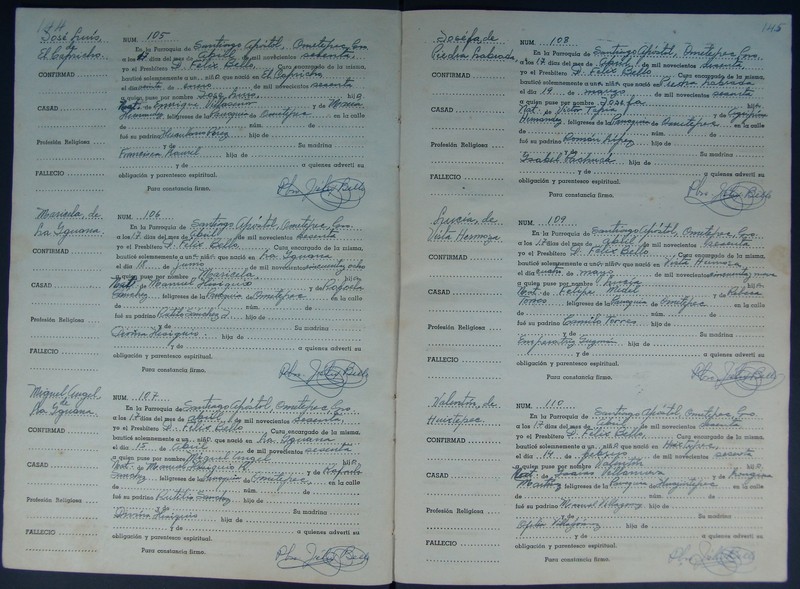 144
José Luis, de
El Capricho.
CONFIRMAD
CASAD
Profesión Religiosa
FALLECIO
NUM. 105
En la Parroquia de Santiago Apóstol, Ometepec, Gro.
a los 17 días del mes de Abril de mil novecientos sesenta,
yo el Presbítero J. Felix Bello Cura encargado de la misma,
bauticé solemnemente a un niño que nació en El Capricho
el día de enero de mil novecientos sesenta
a quien puse por nombre José
hijo
Nat. de Enrique Villasuso y de
de la Parroquia de Ometepec en la calle
de núm. de
fué su padrino hijo de
y de Su madrina
Francisca hija de
y de a quienes advertí su
obligación y parentesco espiritual.
Para constancia firmo. Pbro. Felix Bello
Maricela, de
La Iguana.
CONFIRMAD
CASAD
Profesión Religiosa
FALLECIO
NUM. 106
En la Parroquia de Santiago Apóstol, Ometepec, Gro.
a los 17 días del mes de Abril de mil novecientos sesenta
yo el Presbítero J. Felix Bello Cura encargado de la misma,
bauticé solemnemente a un niñ que nació en La Iguana
el día 18 de Junio de mil novecientos cincuenta y ocho
a quien puse por nombre Maricela
hij
Nat. de Manuel y de
Sánchez feligreses de la Parroquia de Ometepec en la calle
de núm. de
fué su padrino Sánchez hijo de
y de Su madrina
hija de
y de a quienes advertí su
obligación y parentesco espiritual.
Para constancia firmo. Pbro. Felix Bello
Miguel Angel
de
La Iguana
CONFIRMAD
CASAD
Profesión Religiosa
FALLECIO
NUM. 107
En la Parroquia de Santiago Apóstol, Ometepec, Gro.
a los 17 días del mes de abril de mil novecientos sesenta
yo el Presbítero J. Felix Bello Cura encargado de la misma,
bauticé solemnemente a un niñ que nació en La Iguana
el día 15 de Abril de mil novecientos sesenta
a quien puse por nombre Miguel Angel
hijo
Nat. de Manuel y de
Sánchez feligreses de la Parroquia de Ometepec, en la calle
de núm. de
fué su padrino Sánchez hijo de
y de Su madrina
hija de
y de a quienes advertí su
obligación y parentesco espiritual.
Para constancia firmo. Pbro. Felix Bello
145
Josefa, de
Piedra Labrada.
CONFIRMAD
CASAD
Profesión Religiosa
FALLECIO
NUM. 108
En la Parroquia de Santiago Apóstol, Ometepec, Gro.
a los 17 días del mes de Abril de mil novecientos sesenta
yo el Presbítero J. Felix Bello Cura encargado de la misma,
bauticé solemnemente a un niñ que nació en Piedra Labrada
el día 19 de marzo de mil novecientos sesenta
a quien puse por nombre Josefa
hij
Nat. de Victor Tapia y de
Hernández feligreses de la Parroquia de Ometepec en la calle
de núm. de
fué su padrino Román López hijo de
y de Su madrina
Isabel hija de
y de a quienes advertí su
obligación y parentesco espiritual.
Para constancia firmo. Pbro. Felix Bello
Lucía, de
Vista Hermosa.
CONFIRMAD
CASAD
Profesión Religiosa
FALLECIO
NUM. 109
En la Parroquia de Santiago Apóstol, Ometepec, Gro.
a los 17 días del mes de abril de mil novecientos sesenta
yo el Presbítero J. Felix Bello Cura encargado de la misma,
bauticé solemnemente a un niñ que nació en Vista Hermosa
el día de mayo de mil novecientos
a quien puse por nombre Lucía
hij
Nat. de Felipe y de Rebeca
feligreses de la Parroquia de Ometepec en la calle
de núm. de
fué su padrino Camilo Torres hijo de
y de Su madrina
Emperatriz Guzmán hija de
y de a quienes advertí su
obligación y parentesco espiritual.
Para constancia firmo. Pbro. Felix Bello
Valentín, de
Huixtepec
CONFIRMAD
CASAD
Profesión Religiosa
FALLECIO
NUM. 110
En la Parroquia de Santiago Apóstol, Ometepec, Gro.
a los 17 días del mes de abril de mil novecientos sesenta
yo el Presbítero J. Felix Bello Cura encargado de la misma,
bauticé solemnemente a un niño que nació en Huixtepec,
el día 14 de febrero de mil novecientos sesenta
a quien puse por nombre Valentín
hijo
Nat. de Villanueva y de
Martínez feligreses de la Parroquia de Huixtepec en la calle
de núm. de
fué su padrino Manuel hijo de
y de Su madrina
hija de
y de a quienes advertí su
obligación y parentesco espiritual.
Para constancia firmo. Pbro. Felix Bello